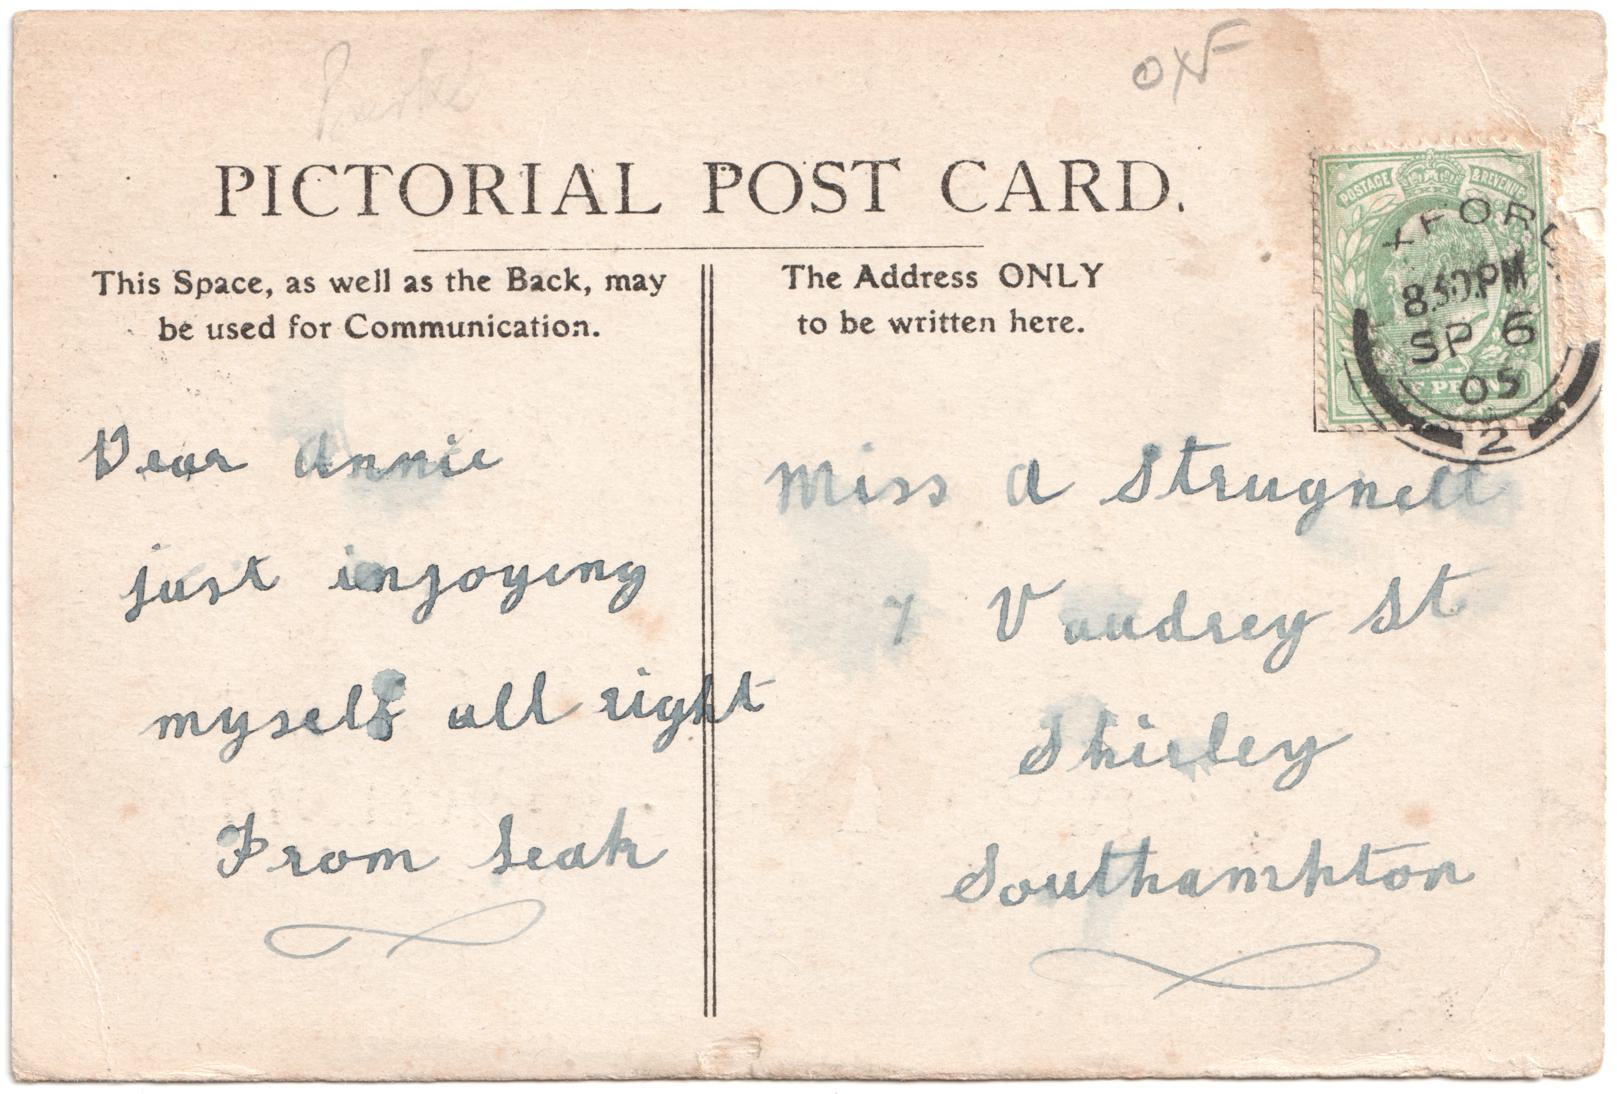 OXF
PICTORIAL POST CARD.
This Space, as well as the Back, may
be used for Communication.
The Address ONLY
to be written here.
POSTAGE & REVENUE
XFOR
8.30.PM
SP 6
05
2
Dear Annie
just injoying
myself all right
From Leah
Miss A Strugnell
7 Vaudrey St
Shirley
Southampton